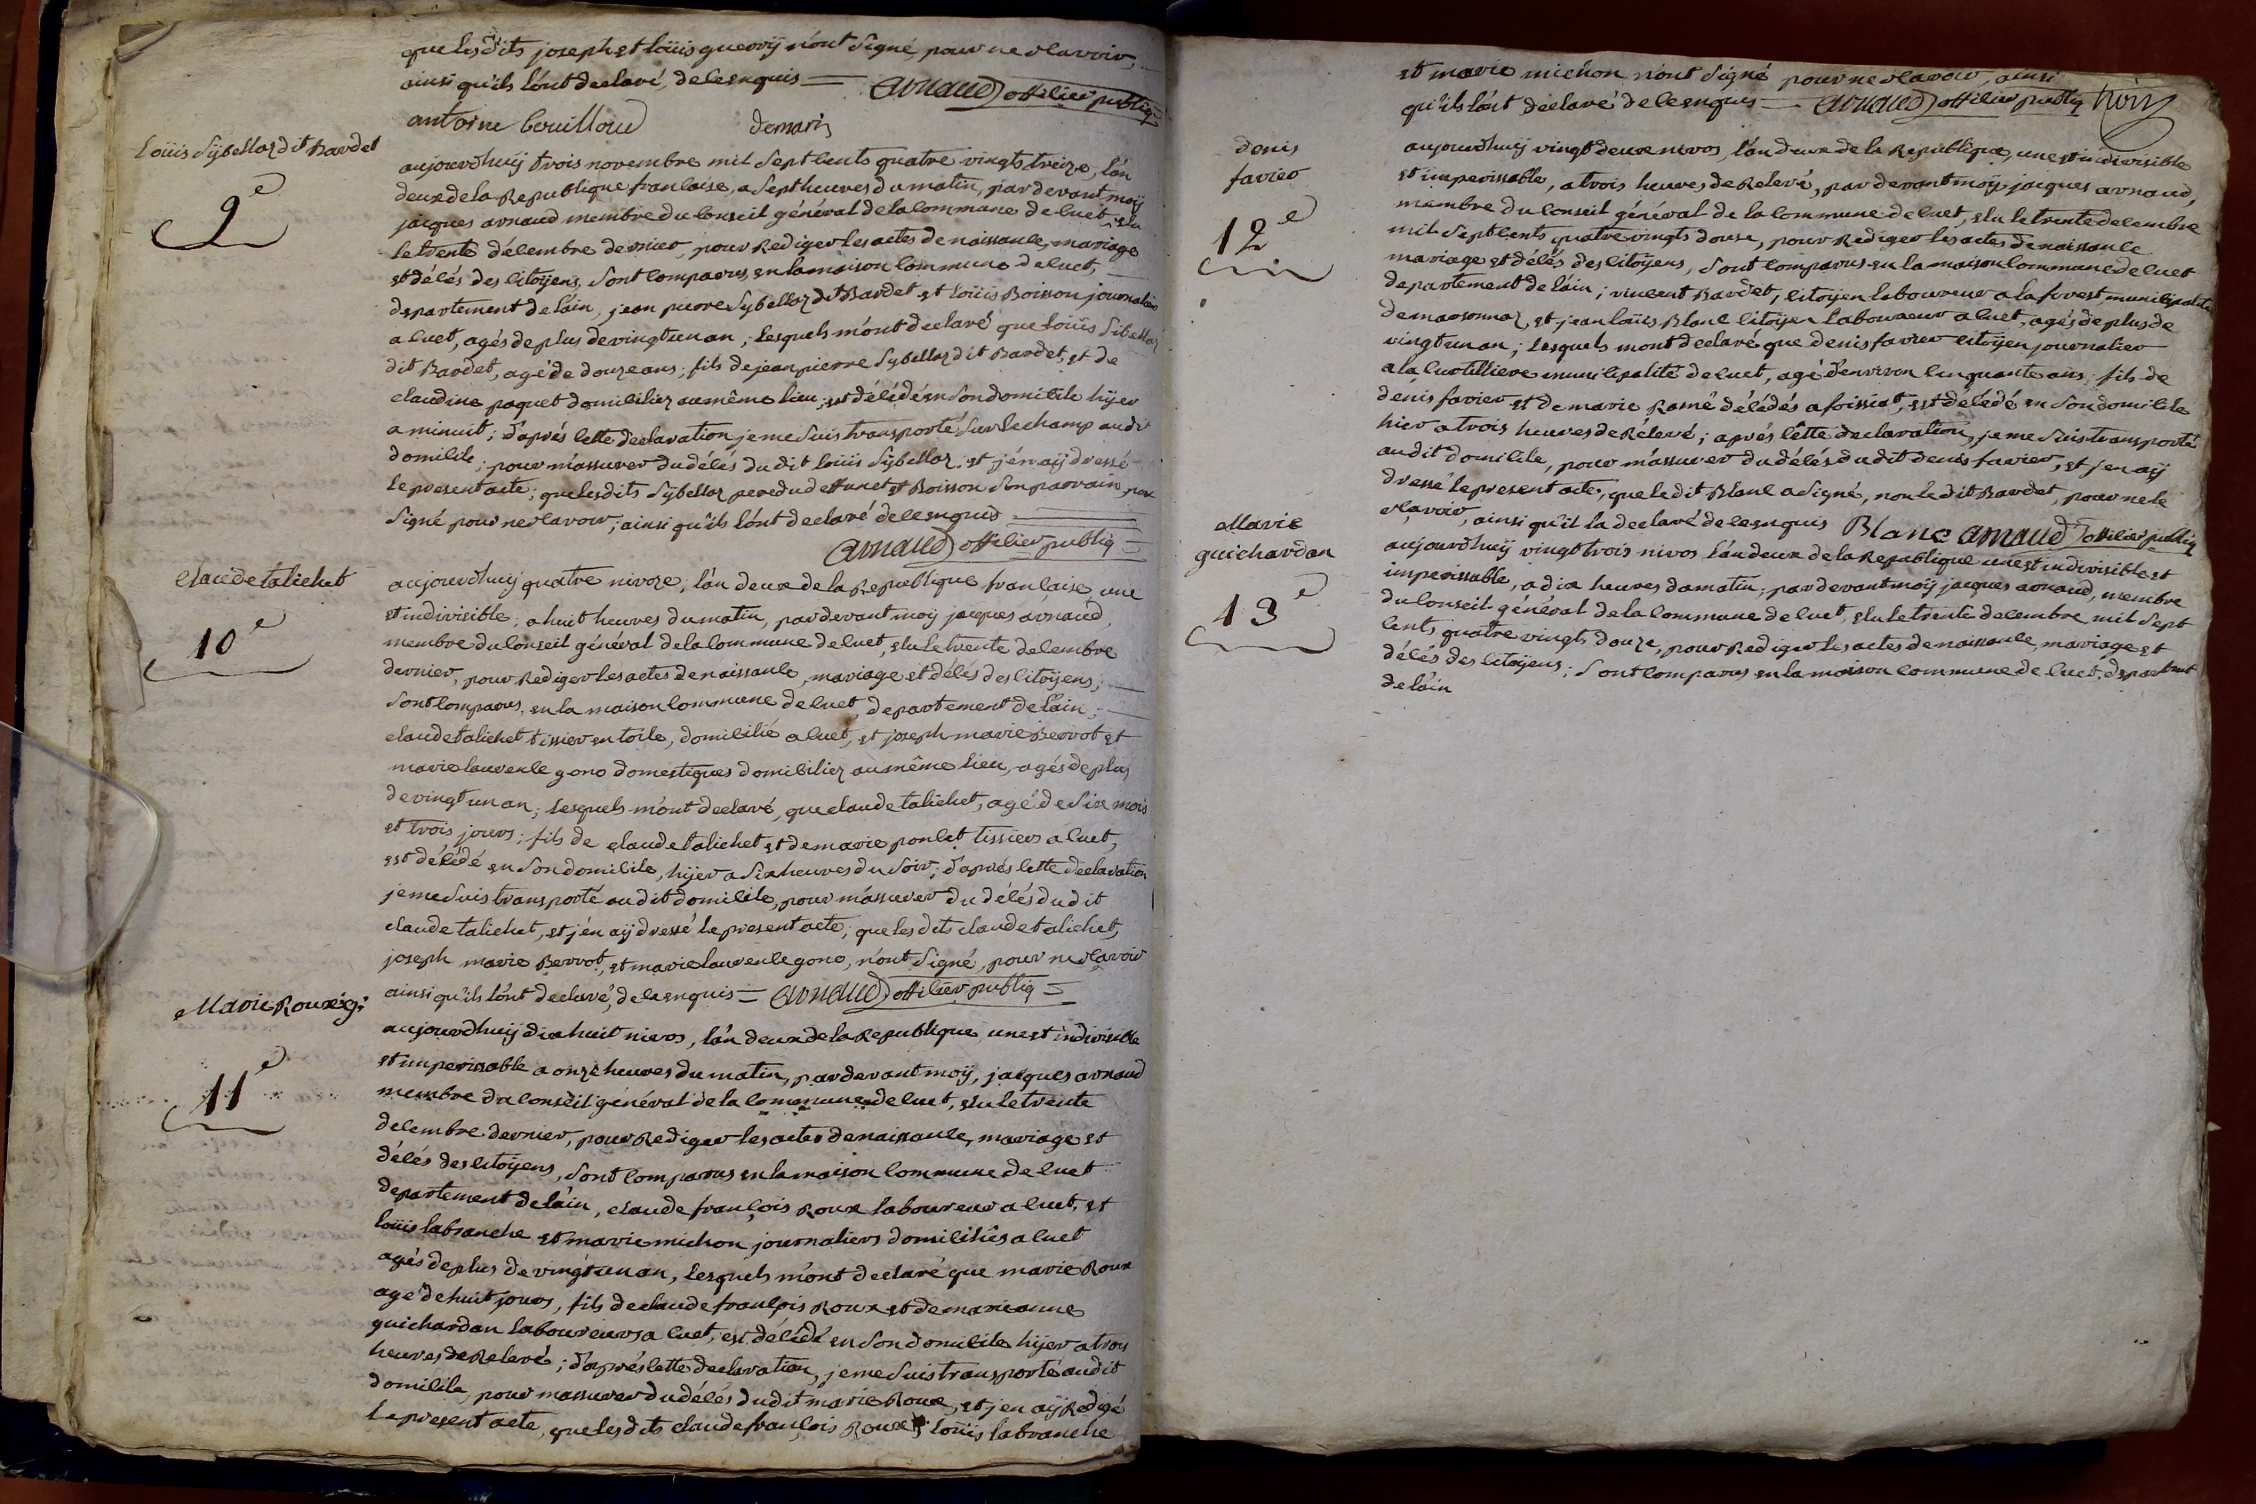 que lesdits joseph et loüis gueroÿ n'ont signé, pour ne sçavoir,
ainsi qu'ils l'ont declaré, de ce enquis = arnaud officier publiq
antoine bouilloud demaris
Loüis Sÿbellaz dit Bardet
9e
aujourd'huÿ trois novembre mil sept cents quatre vingts treize, l'an
deux de la Republique francaise, a sept heures du matin, par devant moÿ
jacques arnaud membre du conseil général de la commune de cuet, elu
le trente décembre dernier, pour Rediger les actes de naissance, mariage
et décés des citoÿens, sont comparus, en la maison commune de cuet,
departement de l'ain, jean pierre Sybellaz dit Bardet et Loüis Boisson journaliers
a cuet, agés de plus de vingt un an; lesquels m'ont declaré que loüis Sibellaz
dit Bardet, agé de douze ans; fils de jean pierre Sybellaz dit Bardet, et de
claudine paquet domiciliez au même lieu; est décédé en son domicile hÿer
a minuit; d'aprés cette declaration je me suis transporté sur le champ audit
domicile; pour m'assurer du décés du dit loüis Sÿbellaz; et j'en aÿ dressé
le present acte; que lesdits Sÿbellaz pere du deffunct et Boisson son parrain, n'ont
signé pour ne sçavoir; ainsi qu'ils l'ont declaré de ce enquis
arnaud officier publiq
claude talichet
10e
aujourd'huÿ quatre nivoze; l'an deux de la Republique française, une
et indivisible; a huit heures du matin, par devant moÿ jacques arnaud,
membre du conseil général de la commune de cuet, elu le trente decembre
dernier, pour Rediger les actes de naissance, mariage et décés des citoÿens;
sont comparus, en la maison commune de cuet, departement de l'ain;
claude talichet tissier en toile, domicilié a cuet, et joseph marie Berrot et
marie laurence gono domestiques domiciliez au même lieu, agés de plus
de vingt un an; lesquels m'ont declaré, que claude talichet, agé de six mois
et trois jours; fils de claude talichet et de marie poncet tissiers a cuet,
est décédé en son domicile, hÿer a six heures du soir; d'aprés cette declaration
je me suis transporté audit domicile, pour m'assurer du décés dudit
claude talichet, et j'en aÿ dressé le present acte; que les dits claude talichet,
joseph marie Berrot, et marie laurence gono, n'ont signé, pour ne sçavoir
ainsi qu'ils l'ont declaré, de ce enquis = arnaud officier publiq =
Marie Roux
11e
aujourd'huÿ dix huit nivos, l'an deux de la Republique, une et indivisible
et imperissable a onze heures du matin, par devant moÿ, jacques arnaud
membre du conseil général de la commune de cuet, elu le trente
decembre dernier, pour Rediger les actes de naissance, mariage et
décés des citoÿens, sont comparus en la maison commune de cuet
departement de l'ain, claude françois Roux laboureur a cuet, et
loüis labranche et marie michon journaliers domiciliés a cuet
agés de plus de vingt un an, lesquels m'ont declaré que marie Roux
agé de huit jours, fils de claude françois Roux et de marie anne
guichardan laboureurs a cuet, est décédé en son domicile hÿer a trois
heures de Relevé; d'aprés cette declaration, je me suis transporté audit
domicile, pour m'assurer du décés dudit marie Roux, et j'en aÿ Redigé
le present acte, que lesdits claude françois Roux, loüis labranche
et marie michon n'ont signé pour ne sçavoir, ainsi
qu'ils l'ont declaré de ce enquis = arnaud officier publiq
denis
favier
12e
aujourd'huÿ vingt deux nivos, l'an deux de la Republique, une et indivisible
et imperissable, a trois heures de Relevé, par devant moÿ jacques arnaud,
membre du conseil général de la commune de cuet, elu le trente decembre
mil sept cents quatre vingts douze, pour Rediger les actes de naissance
mariage et décés des citoÿens, sont comparus en la maison commune de cuet
departement de l'ain; vincent Bardet, citoÿen laboureur a la forest, municipalité
de marsonnaz, et jean loüis Blanc citoÿen laboureur a cuet, agés de plus de
vingt un an; lesquels mont declaré que denis favier citoÿen journalier
a la municipalité de cuet, agé d'environ cinquante ans; fils de
denis favier et de marie Ramé décédés a foissiat, est décédé en son domicile
hier a trois heures de Rélevé; aprés cêtte declaration, je me suis transporté
audit domicile, pour m'assurer du décés dudit denis favier, et j'en aÿ
dressé le present acte, que le dit Blanc a signé, non le dit Bardet, pour ne le
sçavoir, ainsi qu'il la declaré de ce enquis Blanc arnaud officier publiq
Marie
guichardan
13e
aujourd'huÿ vingt trois nivos l'an deux de la Republique une et indivisible et
imperissable, a dix heures du matin; par devant moÿ jacques arnaud, membre
du conseil général de la commune de cuet, elu le trente decembre mil sept
cents quatre vingts douze, pour Rediger les actes de naissance, mariage et
décés des citoÿens; sont comparus en la maison commune de cuet, departement
de l'ain